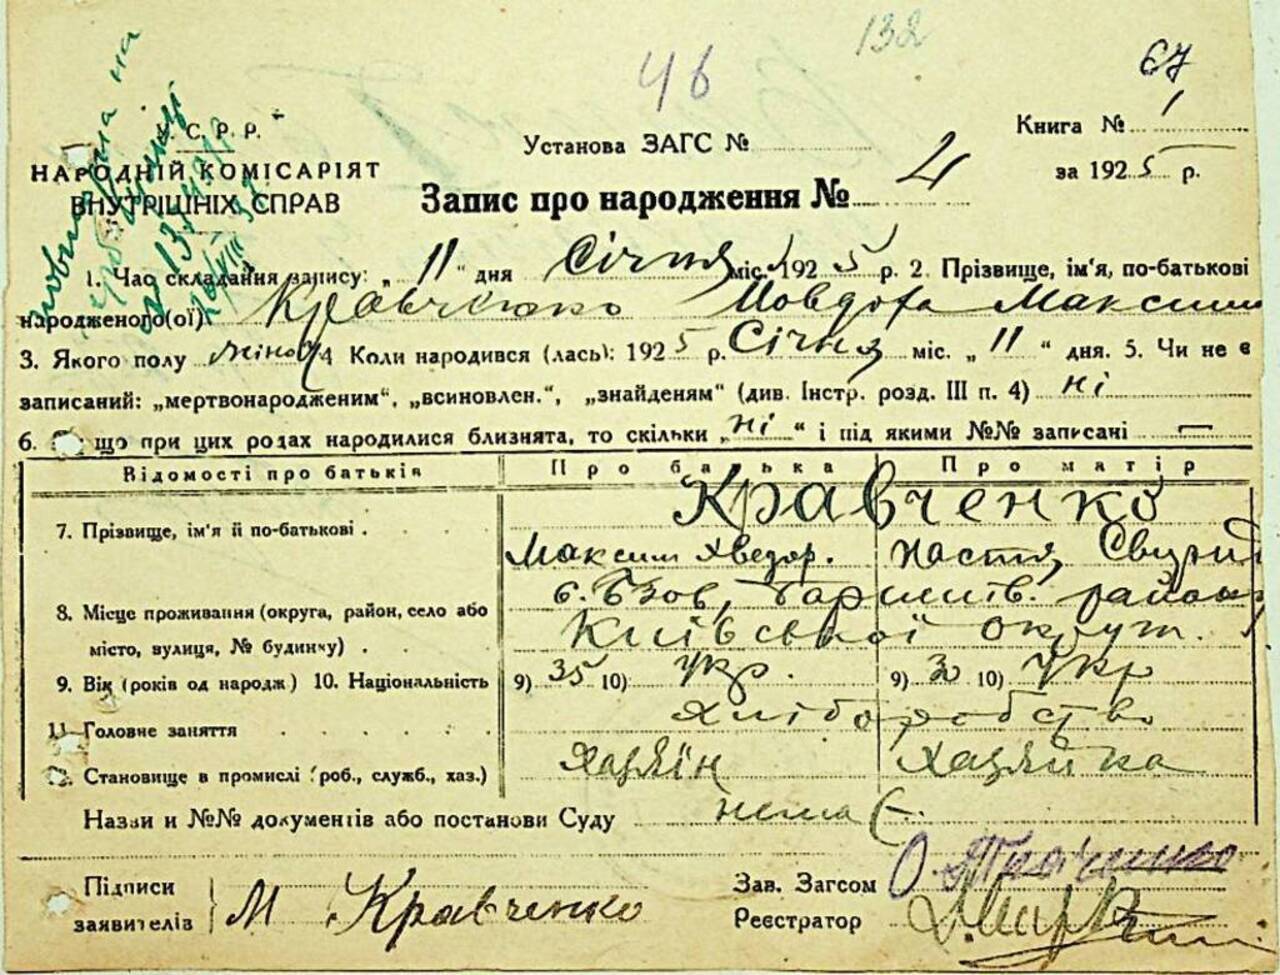 132
46
67
У. С. Р. Р.
НАРОДНІЙ КОМІСАРІЯТ
ВНУТРІШНІХ СПРАВ
Установа ЗАГС №
Книга № 1
за 1925 р.
Запис про народження № 4
1. Час складання запису: „11“ дня Січня міс. 1925 р. 2. Прізвище, ім'я, по-батькові
народженого(ої). Кравченко Максим
3. Якого полу жіноч 4 Коли народився (лась): 1925 р. Січня міс. „11“ дня. 5. Чи не є
записаний: „мертвонародженим“, „всиновлен.“, „знайденям“ (див. Інстр. розд. III п. 4) ні
6. Якщо при цих родах народилися близнята, то скільки „ні“ і під якими №№ записані —
Відомості про батьків Про батька Про матір
7. Прізвище, ім'я й по-батькові . Кравченко
Максим Хведор. Настя, Свирид
8. Місце проживання (округа, район, село або с. Бзов, район
місто, вулиця, № будинку) . Київської округ.
9. Вік (років од народж) 10. Національність 9) 35 10) Укр. 9) 32 10) Укр
11. Головне заняття . . . . . хліборобство
12. Становище в промислі (роб., служб., хаз.) Хазяїн Хазяйка
Назви и №№ документів або постанови Суду нема є.
Підписи
заявителів М Кравченко
Зав. Загсом
Реєстратор